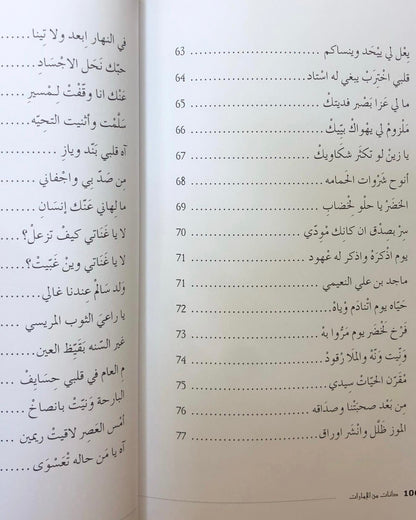 بِعْل لي يِيْحَد وينساكم ........ 63
قلبي اخْترَبْ يبغي له اسْتاد ........ 64
ما لي عزا بَصْبر فديتكْ ........ 65
مَلْزومْ لي يهواكْ بيِّيكْ ........ 66
يا زينْ لو تكثَر شكاويكْ ........ 67
أنوح شَرْوات الحْمامه ........ 68
الحْضَرْ يا حلْو لْخضابِ ........ 69
سِرْ بصدْق ان كانِك مْودّي ........ 70
يوم اذكرَهْ واذكر له عْهود ........ 71
ماجد بن علي النعيمي ........ 71
حَيّاه يوم اتْنادَم وْياهْ ........ 72
فرْخ لخْضَير يوم مَرّوا بهْ ........ 73
وَنّيت وَنّهْ والملا رْقودْ ........ 74
مْقَرّن الحَيّاتْ سِيدي ........ 75
مِن بَعْد صحبتْنا وصداقه ........ 76
الموز ظَلّل وانْشَر اوراق ........ 77
106 دانات من الإمارات
في النهار إبعد ولا تِينا ........
حبّك نَحَل الاجْسادِ ........
عَنّك انا وقّفْتْ لِـمْسير ........
سَلّمْت وأثنيت التحيّه ........
آه قلبي بَنّد ويازِ ........
مِن صَدّ بِي واجْفاني ........
ما لِهاني عَنّك إنسَانِ ........
لا يا غَناتي كيفْ تزعلْ؟ ........
لا يا غَناتي وينْ غَبيّتْ؟ ........
وَلد سَالمْ عِندنا غالي ........
يا راعيَ الثوب المريسي ........
غير السّنه بَقَيّظ العين ........
مِ العام في قلبي حسايفْ ........
البارحة وَنيّتْ بانصاخْ ........
أمْس العَصِر لاقيتْ ريمين ........
آه يا مَن حاله تْعَسْوَى ........